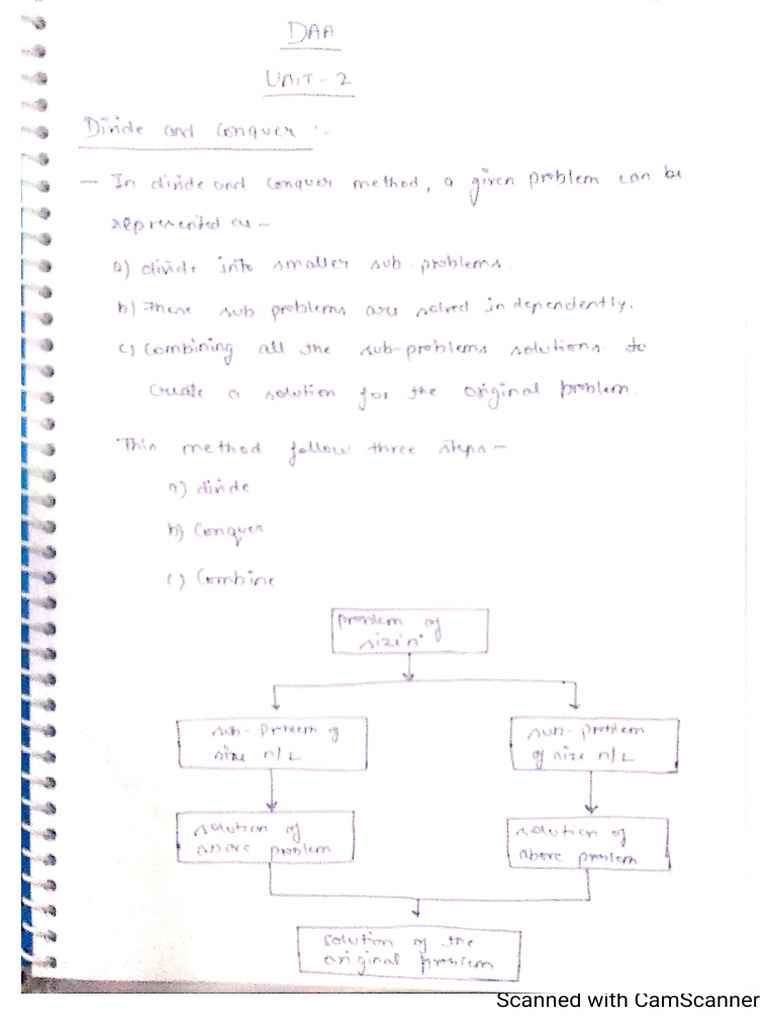 DAA
UNIT - 2
Divide and Conquer :-
- In divide and conquer method, a given problem can be
represented as -
a) divide into smaller sub problems.
b) These sub problems are solved independently.
c) Combining all the sub-problems solutions to
create a solution for the original problem.
This method follow three steps -
a) divide
b) Conquer
c) Combine
problem of
size 'n'
sub-problem of
size n/2
sub-problem
of size n/2
solution of
above problem
solution of
above problem
solution of the
original problem
Scanned with CamScanner